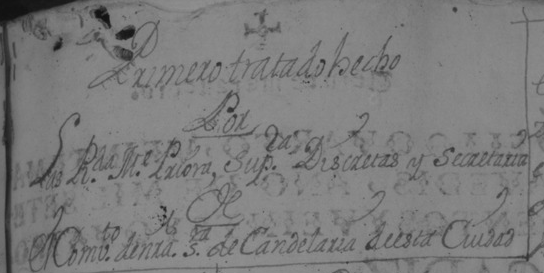 Primero tratado hecho
Por
las R.da M.e Priora, Sup.ra Discretas y Secretaria
De
el Comb.to de nra. S.ra de Candelaria de esta Ciudad